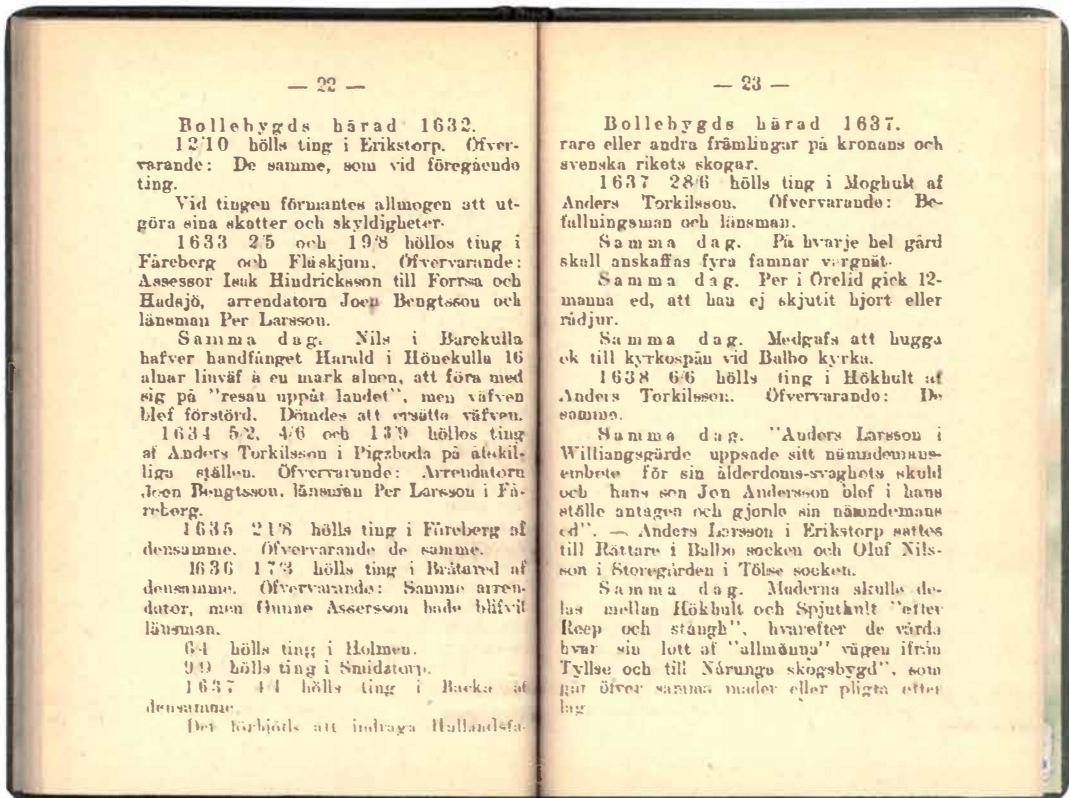 — 22 —
Bollebygds härad 1632.
12/10 hölls ting i Erikstorp. Öfver-
varande: De samme, som vid föregående
ting.
Vid tingen förmantes allmogen att ut-
göra sina skatter och skyldigheter.
1633 2/5 och 19/8 höllos ting i
Fåreberg och Fläskjum. Öfvervarande:
Assessor Isak Hindricksson till Forrsa och
Hudsjö, arrendatorn Joen Bengtsson och
länsman Per Larsson.
Samma dag. Nils i Barekulla
hafver handfånget Harald i Hönekulla 16
alnar linväf à en mark alnen, att föra med
sig på "resan uppåt landet", men väfven
blef förstörd. Dömdes att ersätta väfven.
1634 5/2, 4/6 och 13/9 höllos ting
af Anders Torkilsson i Pigaboda på åtskil-
liga ställen. Öfvervarande: Arrendatorn
Joen Bengtsson, länsman Per Larsson i Få-
reberg.
1635 21/8 hölls ting i Fåreberg af
densamme. Öfvervarande de samme.
1636 17/3 hölls ting i Bråtared af
densamme. Öfvervarande: Samme arren-
dator, men Gunne Assersson hade blifvit
länsman.
6/4 hölls ting i Holmen.
9/9 hölls ting i Smidatorp.
1637 4/4 hölls ting i Backa af
densamme
Det förbjöds att indraga Hallandsfa-
— 23 —
Bollebygds härad 1637.
rare eller andra främlingar på kronans och
svenska rikets skogar.
1637 28/6 hölls ting i Moghult af
Anders Torkilsson. Öfvervarande: Be-
fallningsman och länsman.
Samma dag. På hvarje hel gård
skall anskaffas fyra famnar vargnät.
Samma dag. Per i Örelid gick 12-
manna ed, att han ej skjutit hjort eller
rådjur.
Samma dag. Medgafs att hugga
ek till kyrkospån vid Balbo kyrka.
1638 6/6 hölls ting i Hökhult af
Anders Torkilsson. Öfvervarande: De
samma.
Samma dag. "Anders Larsson i
Williangsgärde uppsade sitt nämndemans-
embete för sin ålderdoms-svaghets skuld
och hans son Jon Andersson blef i hans
ställe antagen och gjorde sin nämndemans
ed". — Anders Larsson i Erikstorp sattes
till Rättare i Balbo socken och Oluf Nils-
son i Storegården i Tölse socken.
Samma dag. Maderna skulle de-
las mellan Hökhult och Spjuthult "efter
Reep och stångh", hvarefter de vårda
hvar sin lott af "allmänna" vägen ifrån
Tyllse och till Nårunga skogsbygd", som
går öfver samma mader eller pligta efter
lag